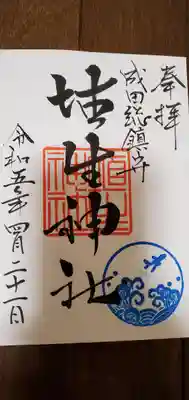 奉拝
成田総鎮守
埴生神社
令和五年四月二十一日